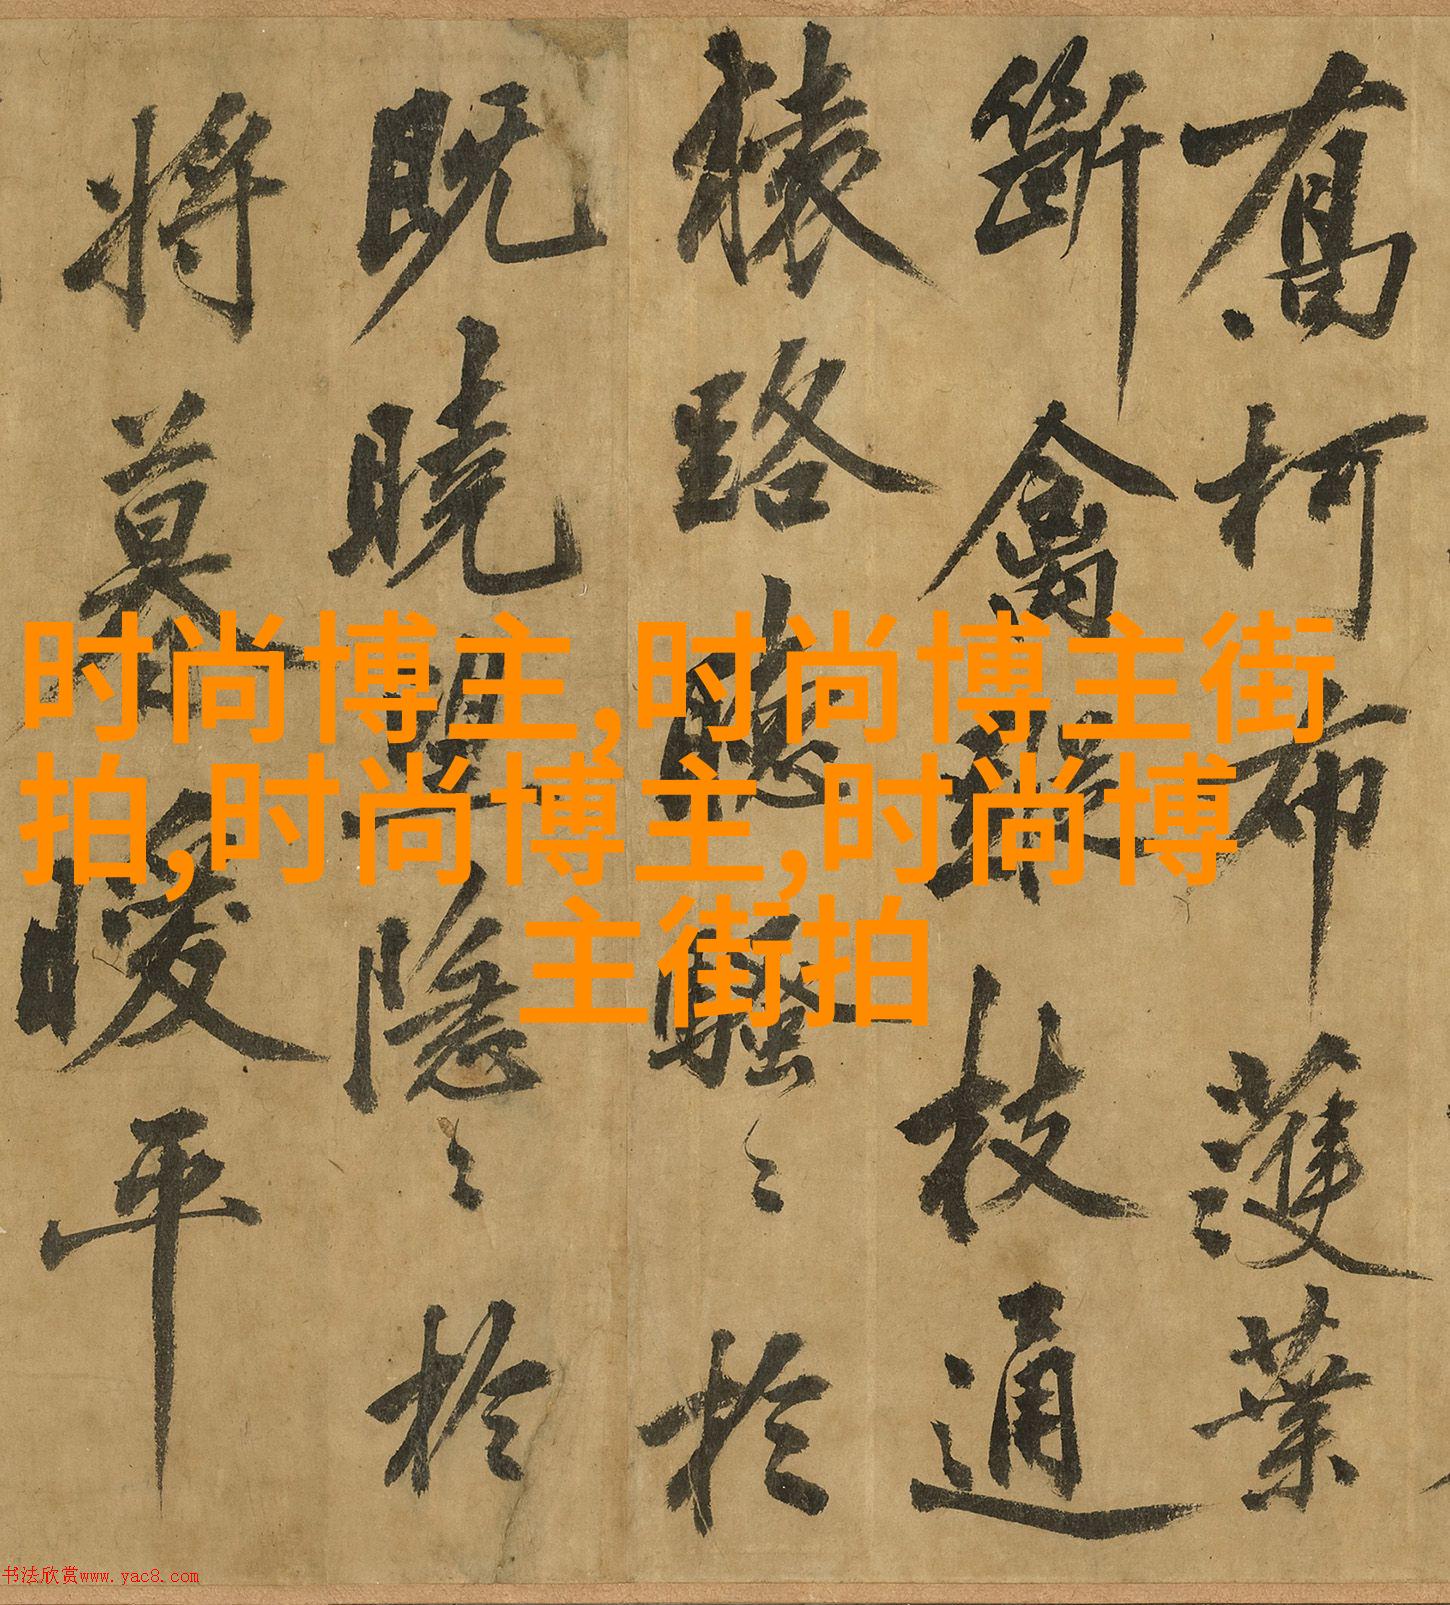 柯布濩葉
斷禽枝通
猿路聽騷〻於
既曉望隱〻於
將暮暖平
时尚博主,时尚博主街
拍,时尚博主,时尚博
主街拍
书法欣赏www.yac8.com